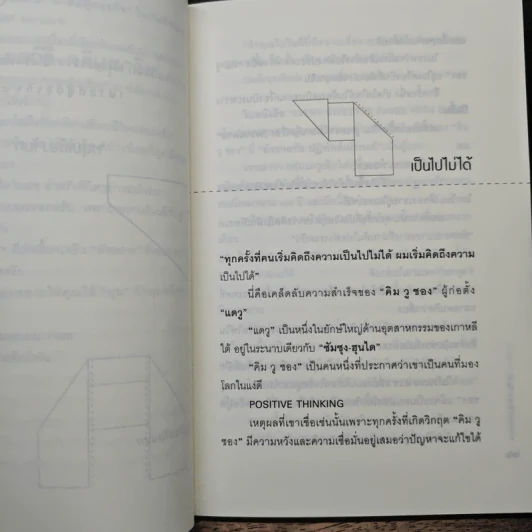 เป็นไปไม่ได้
“ทุกครั้งที่คนเริ่มคิดถึงความเป็นไปไม่ได้ ผมเริ่มคิดถึงความ
เป็นไปได้”
นี่คือเคล็ดลับความสำเร็จของ “คิม วู ชอง” ผู้ก่อตั้ง
“แดวู”
“แดวู” เป็นหนึ่งในยักษ์ใหญ่ด้านอุตสาหกรรมของเกาหลี
ใต้ อยู่ในระนาบเดียวกับ “ซัมซุง-ฮุนได”
“คิม วู ชอง” เป็นคนหนึ่งที่ประกาศว่าเขาเป็นคนที่มอง
โลกในแง่ดี
POSITIVE THINKING
เหตุผลที่เขาเชื่อเช่นนั้นเพราะทุกครั้งที่เกิดวิกฤต “คิม วู
ชอง” มีความหวังและความเชื่อมั่นอยู่เสมอว่าปัญหาจะแก้ไขได้